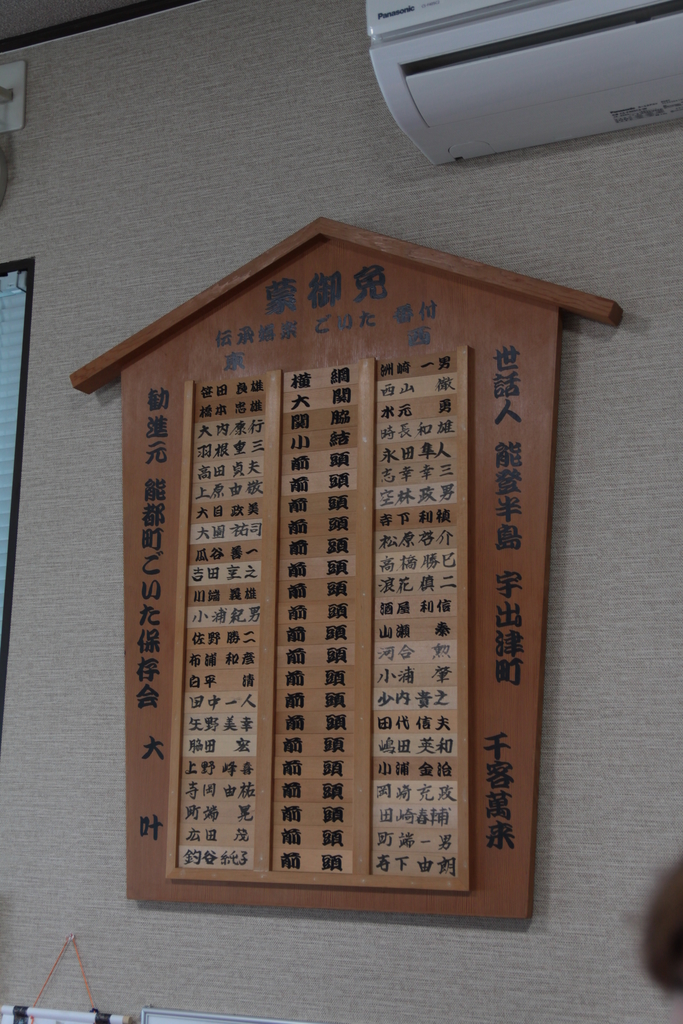 Panasonic
蒙御免
伝承娯楽 ごいた 番付
東 西
世話人 能登半島 宇出津町 千客萬来
勧進元 能都町ごいた保存会 大 叶
笹田良雄 横綱 洲崎一男
橋本忠雄 大関 西山徹
大内原行 関脇 水元勇
羽根重三 小結 時長和雄
高田貞夫 前頭 永田隼人
上原由敬 前頭 志幸幸三
大目政美 前頭 空林政男
大圖祐司 前頭 寺下利禎
瓜谷善一 前頭 松原啓介
吉田主之 前頭 高橋勝巳
川端義雄 前頭 浪花慎二
小浦紀男 前頭 酒屋利信
佐野勝二 前頭 山瀬泰
布浦和彦 前頭 河合勲
白平清 前頭 小浦肇
田中一人 前頭 少内貴之
矢野美幸 前頭 田代信夫
脇田宏 前頭 嶋田英和
上野峰喜 前頭 小浦金治
寺岡由祐 前頭 岡崎充政
町端晃 前頭 田崎春輔
広田茂 前頭 町端一男
釣谷純子 前頭 寺下由朗